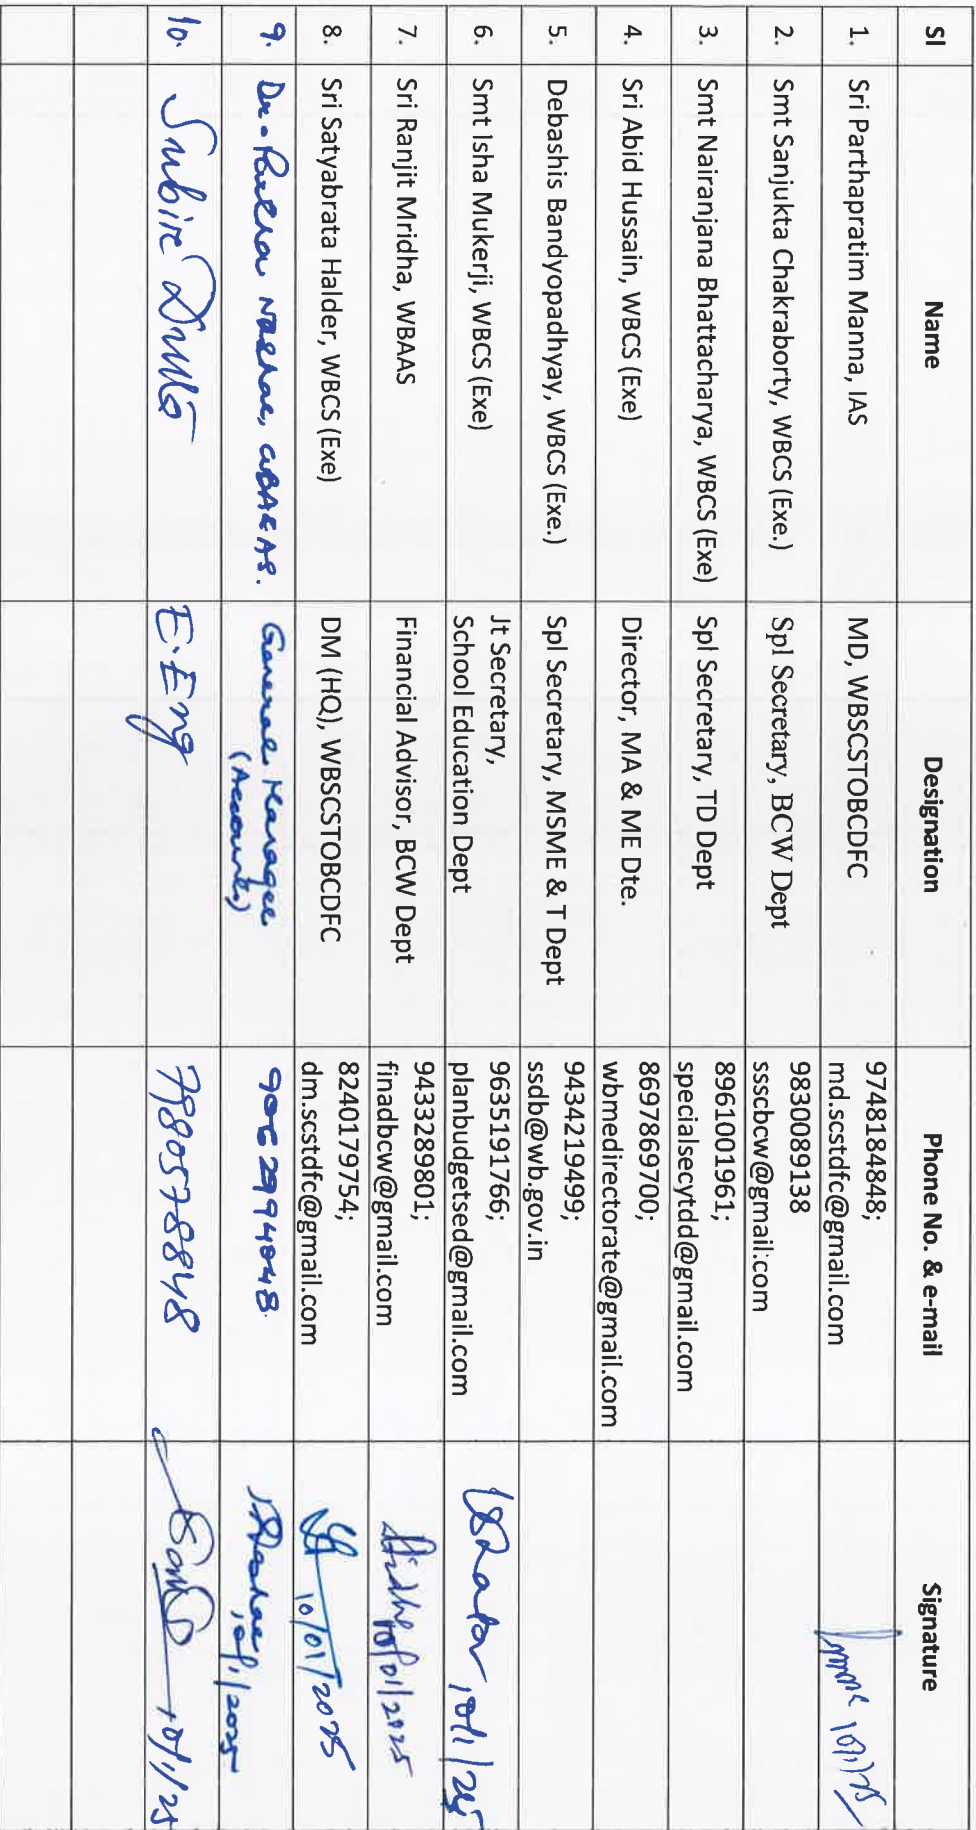 Sl Name Designation Phone No. & e-mail Signature
1. Sri Parthapratim Manna, IAS MD, WBSCSTOBCDFC 9748184848;
md.scstdfc@gmail.com
10/1/25
2. Smt Sanjukta Chakraborty, WBCS (Exe.) Spl Secretary, BCW Dept 9830089138
ssscbcw@gmail.com
3. Smt Nairanjana Bhattacharya, WBCS (Exe) Spl Secretary, TD Dept 8961001961;
specialsecytdd@gmail.com
4. Sri Abid Hussain, WBCS (Exe) Director, MA & ME Dte. 8697869700;
wbmedirectorate@gmail.com
5. Debashis Bandyopadhyay, WBCS (Exe.) Spl Secretary, MSME & T Dept 9434219499;
ssdb@wb.gov.in
6. Smt Isha Mukerji, WBCS (Exe) Jt Secretary,
School Education Dept
9635191766;
planbudgetsed@gmail.com
10/1/25
7. Sri Ranjit Mridha, WBAAS Financial Advisor, BCW Dept 9433289801;
finadbcw@gmail.com
10/01/2025
8. Sri Satyabrata Halder, WBCS (Exe) DM (HQ), WBSCSTOBCDFC 8240179754;
dm.scstdfc@gmail.com
10/01/2025
9. Dr. Partha Naskar, General Manager
(Accounts)
9062994048
10/1/2025
10. Subir Dutta E.Eng 7980578848
10/1/25